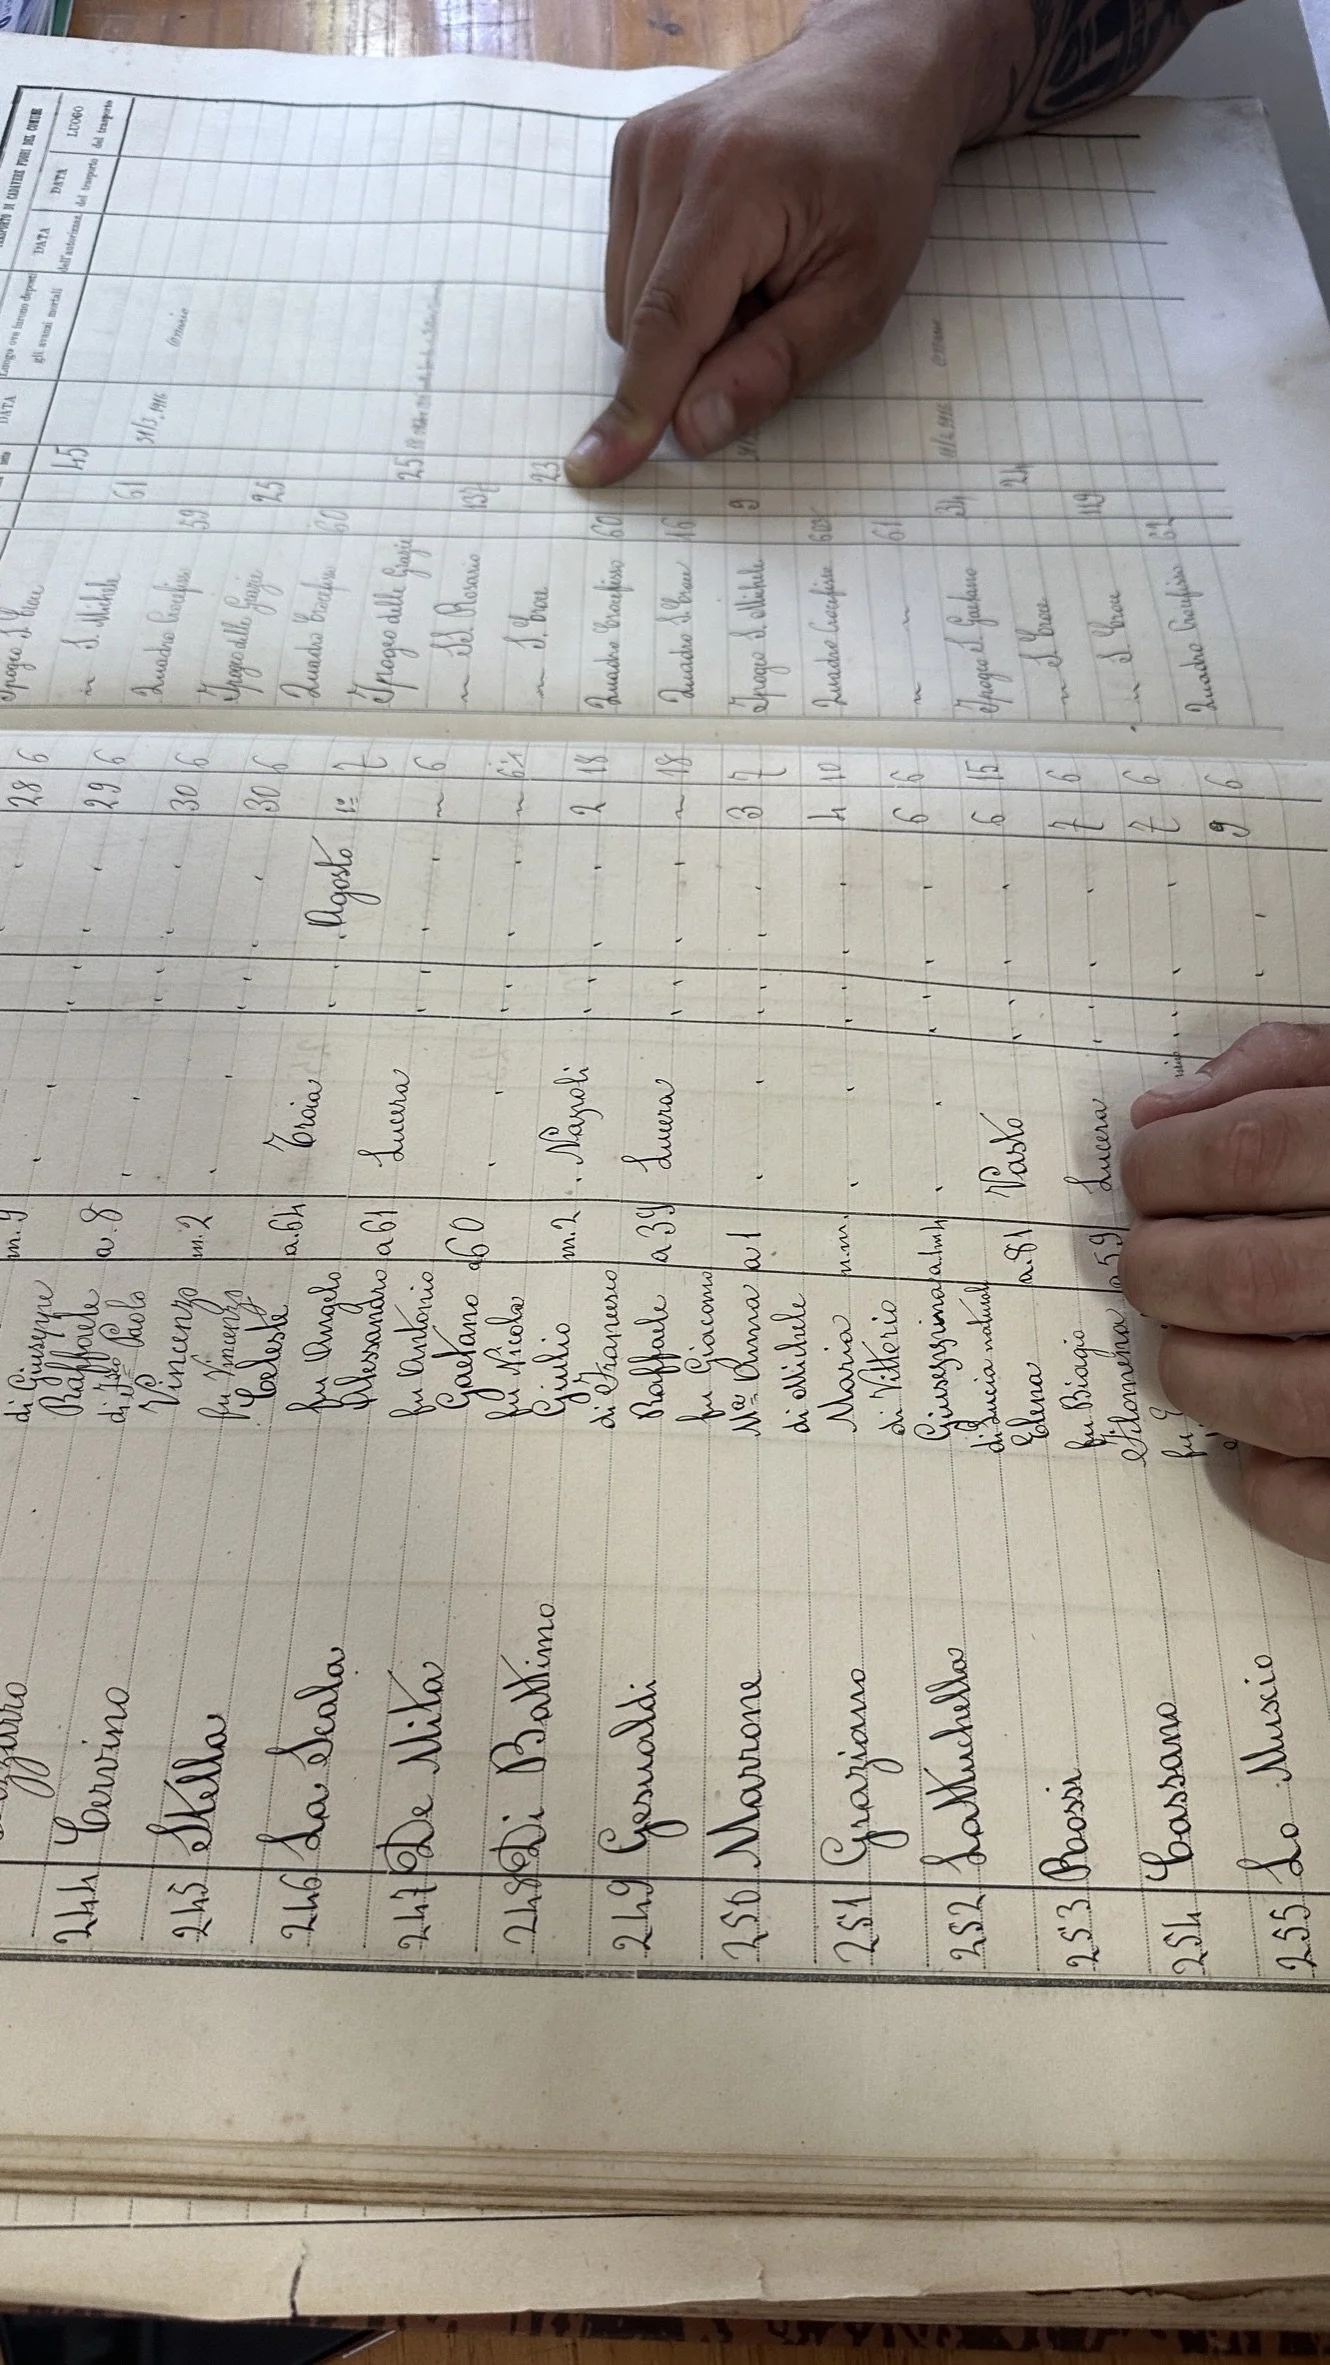 TRASPORTO DI CADAVERE FUORI DEL COMUNE
DATA
Luogo ove furono deposti gli avanzi mortali
DATA dell'autorizzaz.
DATA del trasporto
LUOGO del trasporto
di Giuseppe m. 9 " " " " 28 6 Ipogeo S. Croce 45
244 Cervino Raffaele di Paolo a. 8 " " " " 29 6 " S. Michele 61
245 Stella Vincenzo fu Vincenzo m. 2 " " " " 30 6 Quadro Crocefisso 59 31/3.1916 Ossario
246 La Scala Celeste fu Angelo a. 64 Troia " " " 30 6 Ipogeo delle Grazie 25
247 De Mita Alessandro fu Antonio a 61 Lucera " " Agosto 1º 7 Quadro Crocefisso 60
248 Di Battimo Gaetano fu Nicola a 60 " " " " " 6 Ipogeo delle Grazie 25
" SS. Rosario 137
249 Gesualdi Giulio di Francesco m. 2 Napoli " " " " " S. Croce 23
250 Marrone Raffaele fu Giacomo a 39 Lucera " " " 2 18 Quadro Crocefisso 60
" 18 Quadro S. Croce 16
251 Graziano Mª Anna di Michele a 1 " " " " 3 7 Ipogeo S. Michele 9
252 Lattuchella Maria di Vittorio " " " " 4 10 Quadro Crocefisso
Giuseppina di Lucia naturale " " " " 6 6 " " 61
253 Rossi Elena fu Biagio a. 81 Vasto " " " 6 15 Ipogeo S. Gaetano 34 Ossario
254 Cassano Filomena fu a 59 Lucera " " " 7 6 " S. Croce 24
" " 7 6 " S. Croce 119
255 Lo Muscio " " 9 6 Quadro Crocefisso